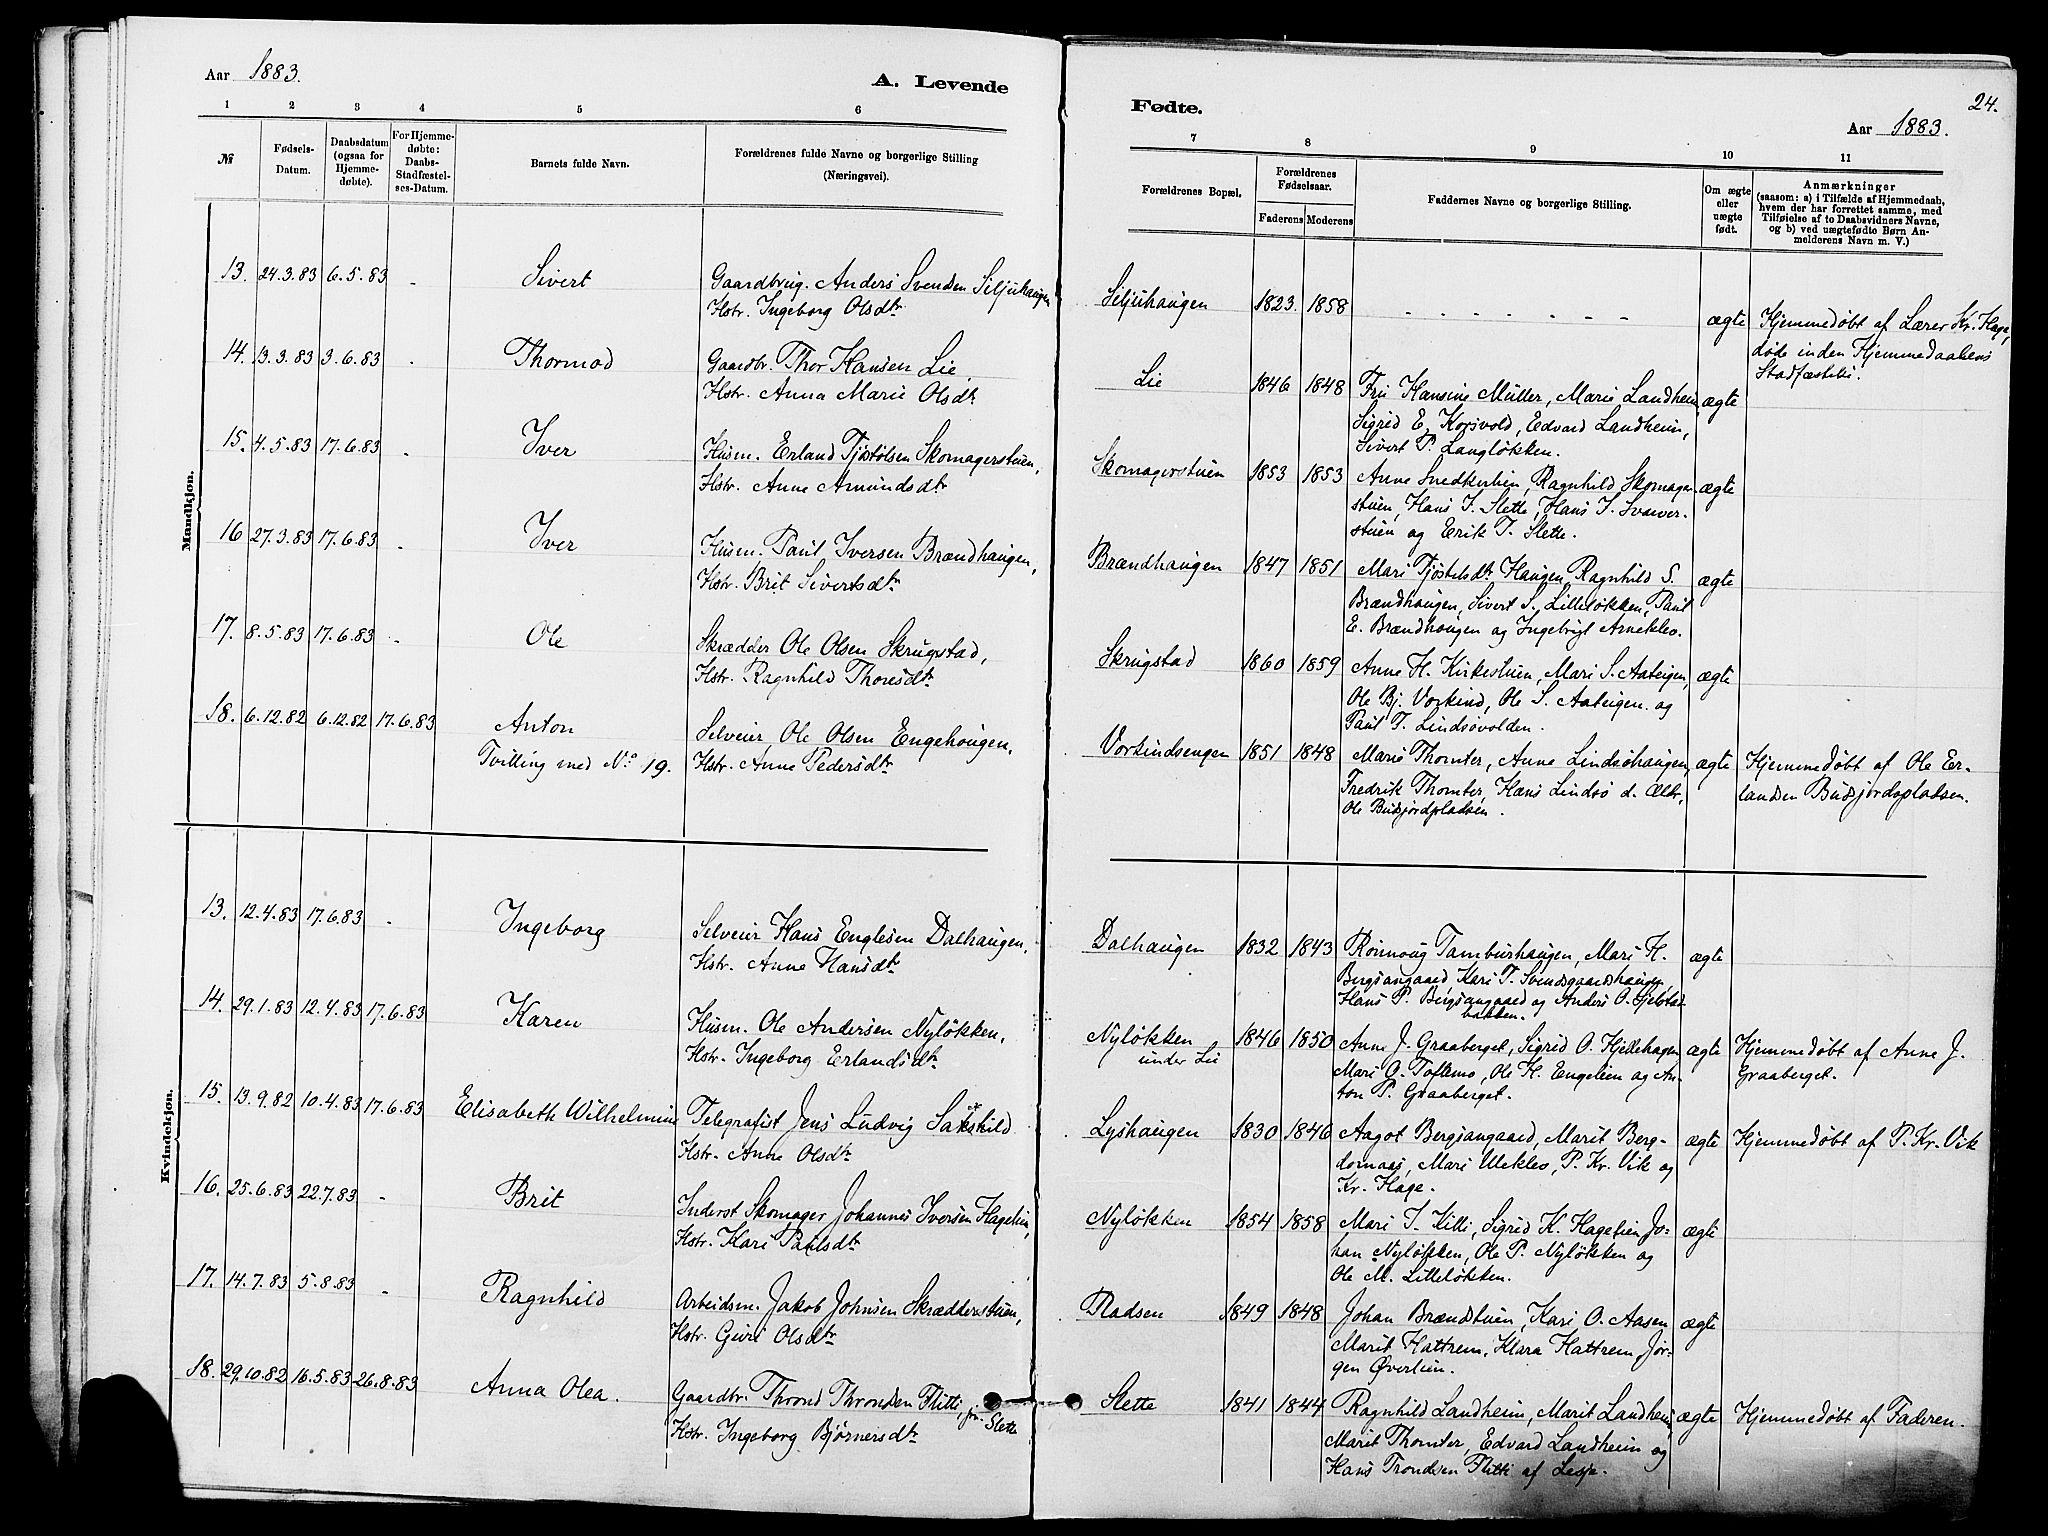 Aar 1883.
A. Levende
1 2 3 4 5 6
№
Fødsels-Datum.
Daabsdatum (ogsaa for Hjemmedøbte).
For Hjemmedøbte: Daabs-Stadfæstelses-Datum.
Barnets fulde Navn.
Forældrenes fulde Navne og borgerlige Stilling
(Næringsvei).
Mandkjøn.
13. 24.3.83 6.5.83 - Sivert Gaardbrug. Anders Svendsen Siljuhaugen
Hstr. Ingeborg Olsdtr
14. 13.3.83 3.6.83 - Thormod Gaardbr. Thor Hansen Lie,
Hstr. Anna Marie Olsdtr
15. 4.5.83 17.6.83 - Iver Husm. Erland Tjøstolsen Skomagerstuen,
Hstr. Anne Amundsdtr
16 27.3.83 17.6.83 - Iver Husm. Paul Iversen Brændhaugen,
Hstr. Brit Sivertsdtr
17. 8.5.83 17.6.83 - Ole Skrædder Ole Olsen Skrugstad,
Hstr. Ragnhild Thoresdtr
18. 6.12.82 6.12.82 17.6.83 Anton Selveier Ole Olsen Engehougen,
Tvilling med No 19. Hstr. Anne Pedersdtr
Kvindekjøn.
13. 12.4.83 17.6.83 - Ingeborg Selveier Hans Englesen Dalhaugen,
Hstr. Anne Hansdtr
14. 29.1.83 12.4.83 17.6.83 Karen Husm. Ole Andersen Nyløkken,
Hstr. Ingeborg Erlandsdtr
15. 13.9.82 10.4.83 17.6.83 Elisabeth Wilhelmine Telegrafist Jens Ludvig Sakshild
Hstr. Anne Olsdtr
16. 25.6.83 22.7.83 - Brit Inderst Skomager Johannes Iversen Hagelien,
Hstr. Kari Paulsdtr
17. 14.7.83 5.8.83 - Ragnhild Arbeidsm. Jakob Johnsen Skrædderstuen,
Hstr. Guri Olsdtr
18. 29.10.82 16.5.83 26.8.83 Anna Olea. Gaardbr. Thrond Thronsen Flitti fr. Slette
Hstr. Ingeborg Bjørnersdtr
Fødte.
24.
Aar 1883.
7 8 9 10 11
Forældrenes Bopæl.
Forældrenes Fødselsaar.
Faderens Moderens
Faddernes Navne og borgerlige Stilling.
Om ægte eller uægte født.
Anmærkninger
(saasom: a) i Tilfælde af Hjemmedaab,
hvem der har forrettet samme, med
Tilføielse af to Daabsvidners Navne,
og b) ved uægtefødte Børn Anmelderens Navn m. V.)
Siljuhaugen 1823. 1858 - - - - - - - ægte Hjemmedøbt af Lærer Kr. Hage,
døde inden Hjemmedaabens
Stadfæstelse.
Lie 1846 1848 Fru Hansine Müller, Marie Landheim, ægte
Sigrid E. Korsvold, Edvard Landheim,
Sivert P. Langløkken.
Skomagerstuen 1853 1853 Anne Snedkerlien, Ragnhild Skomager- ægte
stuen, Hans J. Slette, Hans J. Svarver-
stuen og Erik T. Slette.
Brændhaugen 1847 1851 Mari Tjøstelsdtr Haugen, Ragnhild S. ægte
Brændhaugen, Sivert S. Lilleløkken, Paul
E. Brændhougen og Ingebrigt Arneklev.
Skrugstad 1860 1859 Anne H. Kirkestuen, Mari S. Aateigen, ægte
Ole Bj. Vorkind, Ole S. Aateigen og
Paul T. Lindsøvolden.
Vorkindsengen 1851 1848 Marie Thomter, Anne Lindsøhaugen, ægte Hjemmedøbt af Ole Er-
Fredrik Thomter, Hans Lindsø d. Ældr, landsen Buskjordspladsen.
Ole Buskjordspladsen.
Dalhaugen 1832 1843 Rønnoug Tamburhaugen, Mari H. ægte
Bergsangaard, Kari T. Svendsgaardshaugen,
Hans P. Bergsangaard og Anders O. Hjelstad-
bakken.
Nyløkken 1846 1850 Anne J. Graaberget, Sigrid O. Hjellehagen ægte Hjemmedøbt af Anne J.
under Lie Mari O. Toftemo, Ole H. Engelien og An- Graaberget.
ton P. Graaberget.
Lyshaugen 1830 1846 Aagot Bergsangaard, Marit Berg- ægte Hjemmedøbt af P. Kr. Vik
domaas, Mari Uleklev, P. Kr. Vik og
Kr. Hage.
Nyløkken 1854 1858 Mari I. Killi, Sigrid K. Hagelien, Jo- ægte
han Nyløkken, Ole P. Nyløkken og
Ole M. Lilleløkken.
Pladsen 1849 1848 Johan Brændstuen, Kari O. Aasen ægte
Marit Hattrem, Klara Hattrem, Jør-
gen Øverlien.
Slette 1841 1844 Ragnhild Landheim, Marit Landheim ægte Hjemmedøbt af Faderen.
Marit Thomter, Edvard Landheim og
Hans Trondsen Flitti af Lesje.